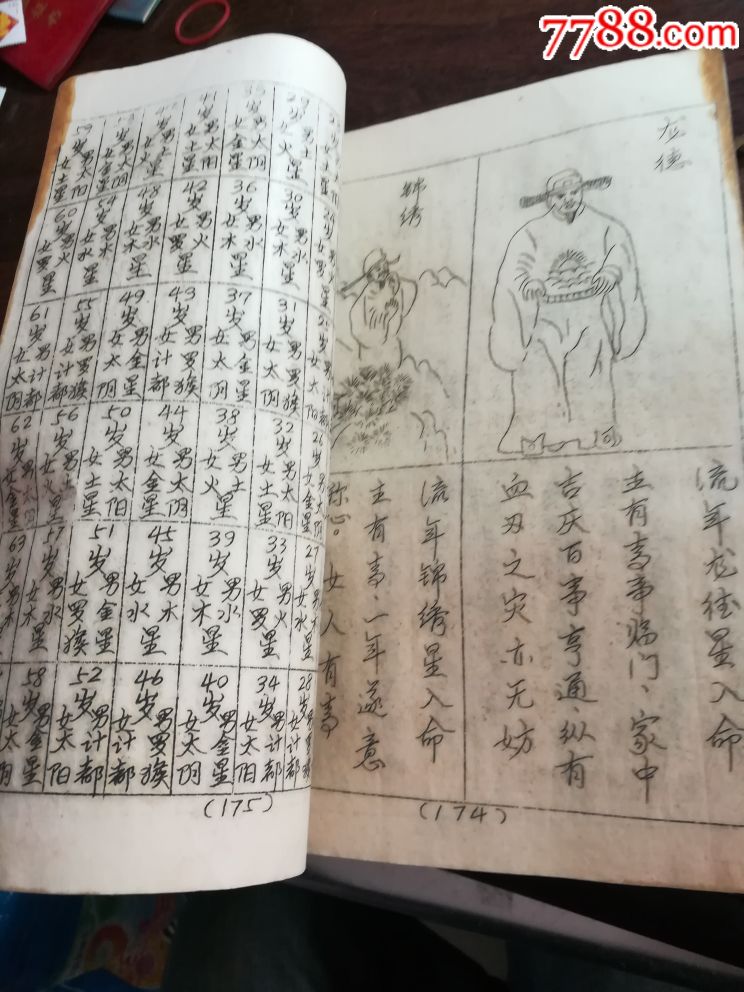 龙德
流年龙德星入命
主有喜事临门、家中
吉庆百事亨通、纵有
血刃之灾亦无妨
锦绣
流年锦绣星入命
主有喜事、一年遂意
称心。女人有喜
(174)
30岁 男水星 女木星
31岁 男罗猴
32岁 男太阳 女土星
33岁 男火 女罗
34岁 男计都 女太阳
36岁 男水星 女木星
37岁 男金星 女太阴
38岁 男土星 女火星
39岁 男水星 女木星
40岁 男金星 女太阴
41岁 男太阳 女土星
42岁 男火星 女罗
43岁 男罗猴 女计都
44岁 男太阳 女金星
45岁 男木星 女水星
46岁 男罗猴 女计都
48岁 男水星 女木星
49岁 男金星 女太阴
50岁 男太阳 女土星
51岁 男金星 女罗猴
52岁 男计都 女太阳
54岁 男木星 女水星
55岁 男罗猴 女计都
56岁 男土星 女火星
57岁 男水星 女木星
58岁 男金星 女太阴
59岁 男太阳 女土星
60岁 男火星 女罗
61岁 男计都 女太阴
62岁 男太阴 女金星
63岁
(175)
7788.com